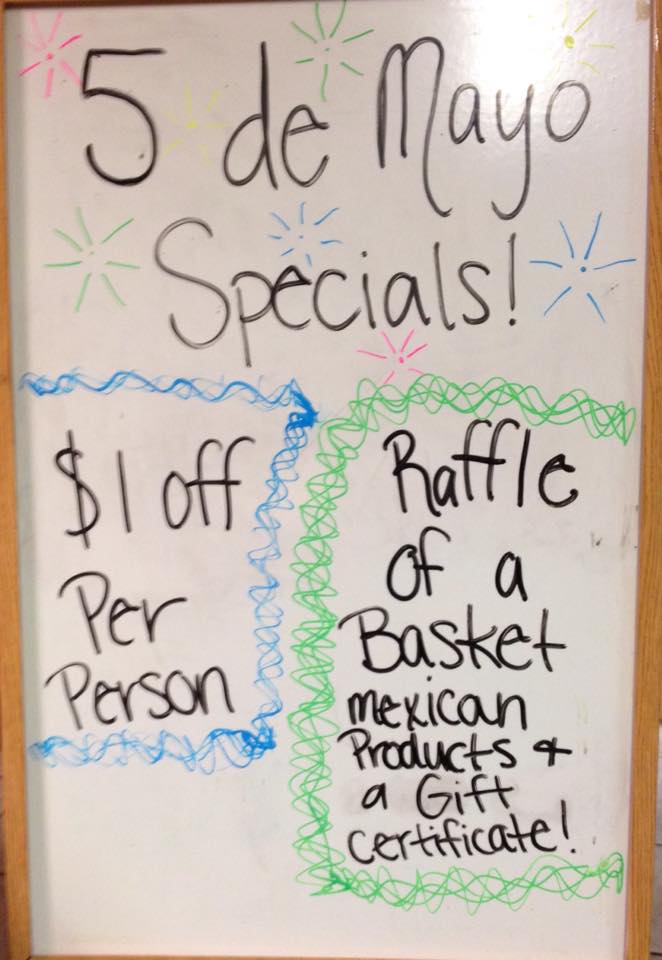 5 de Mayo
Specials!
$1 off
Per
Person
Raffle
of a
Basket
mexican
Products &
a Gift
certificate!